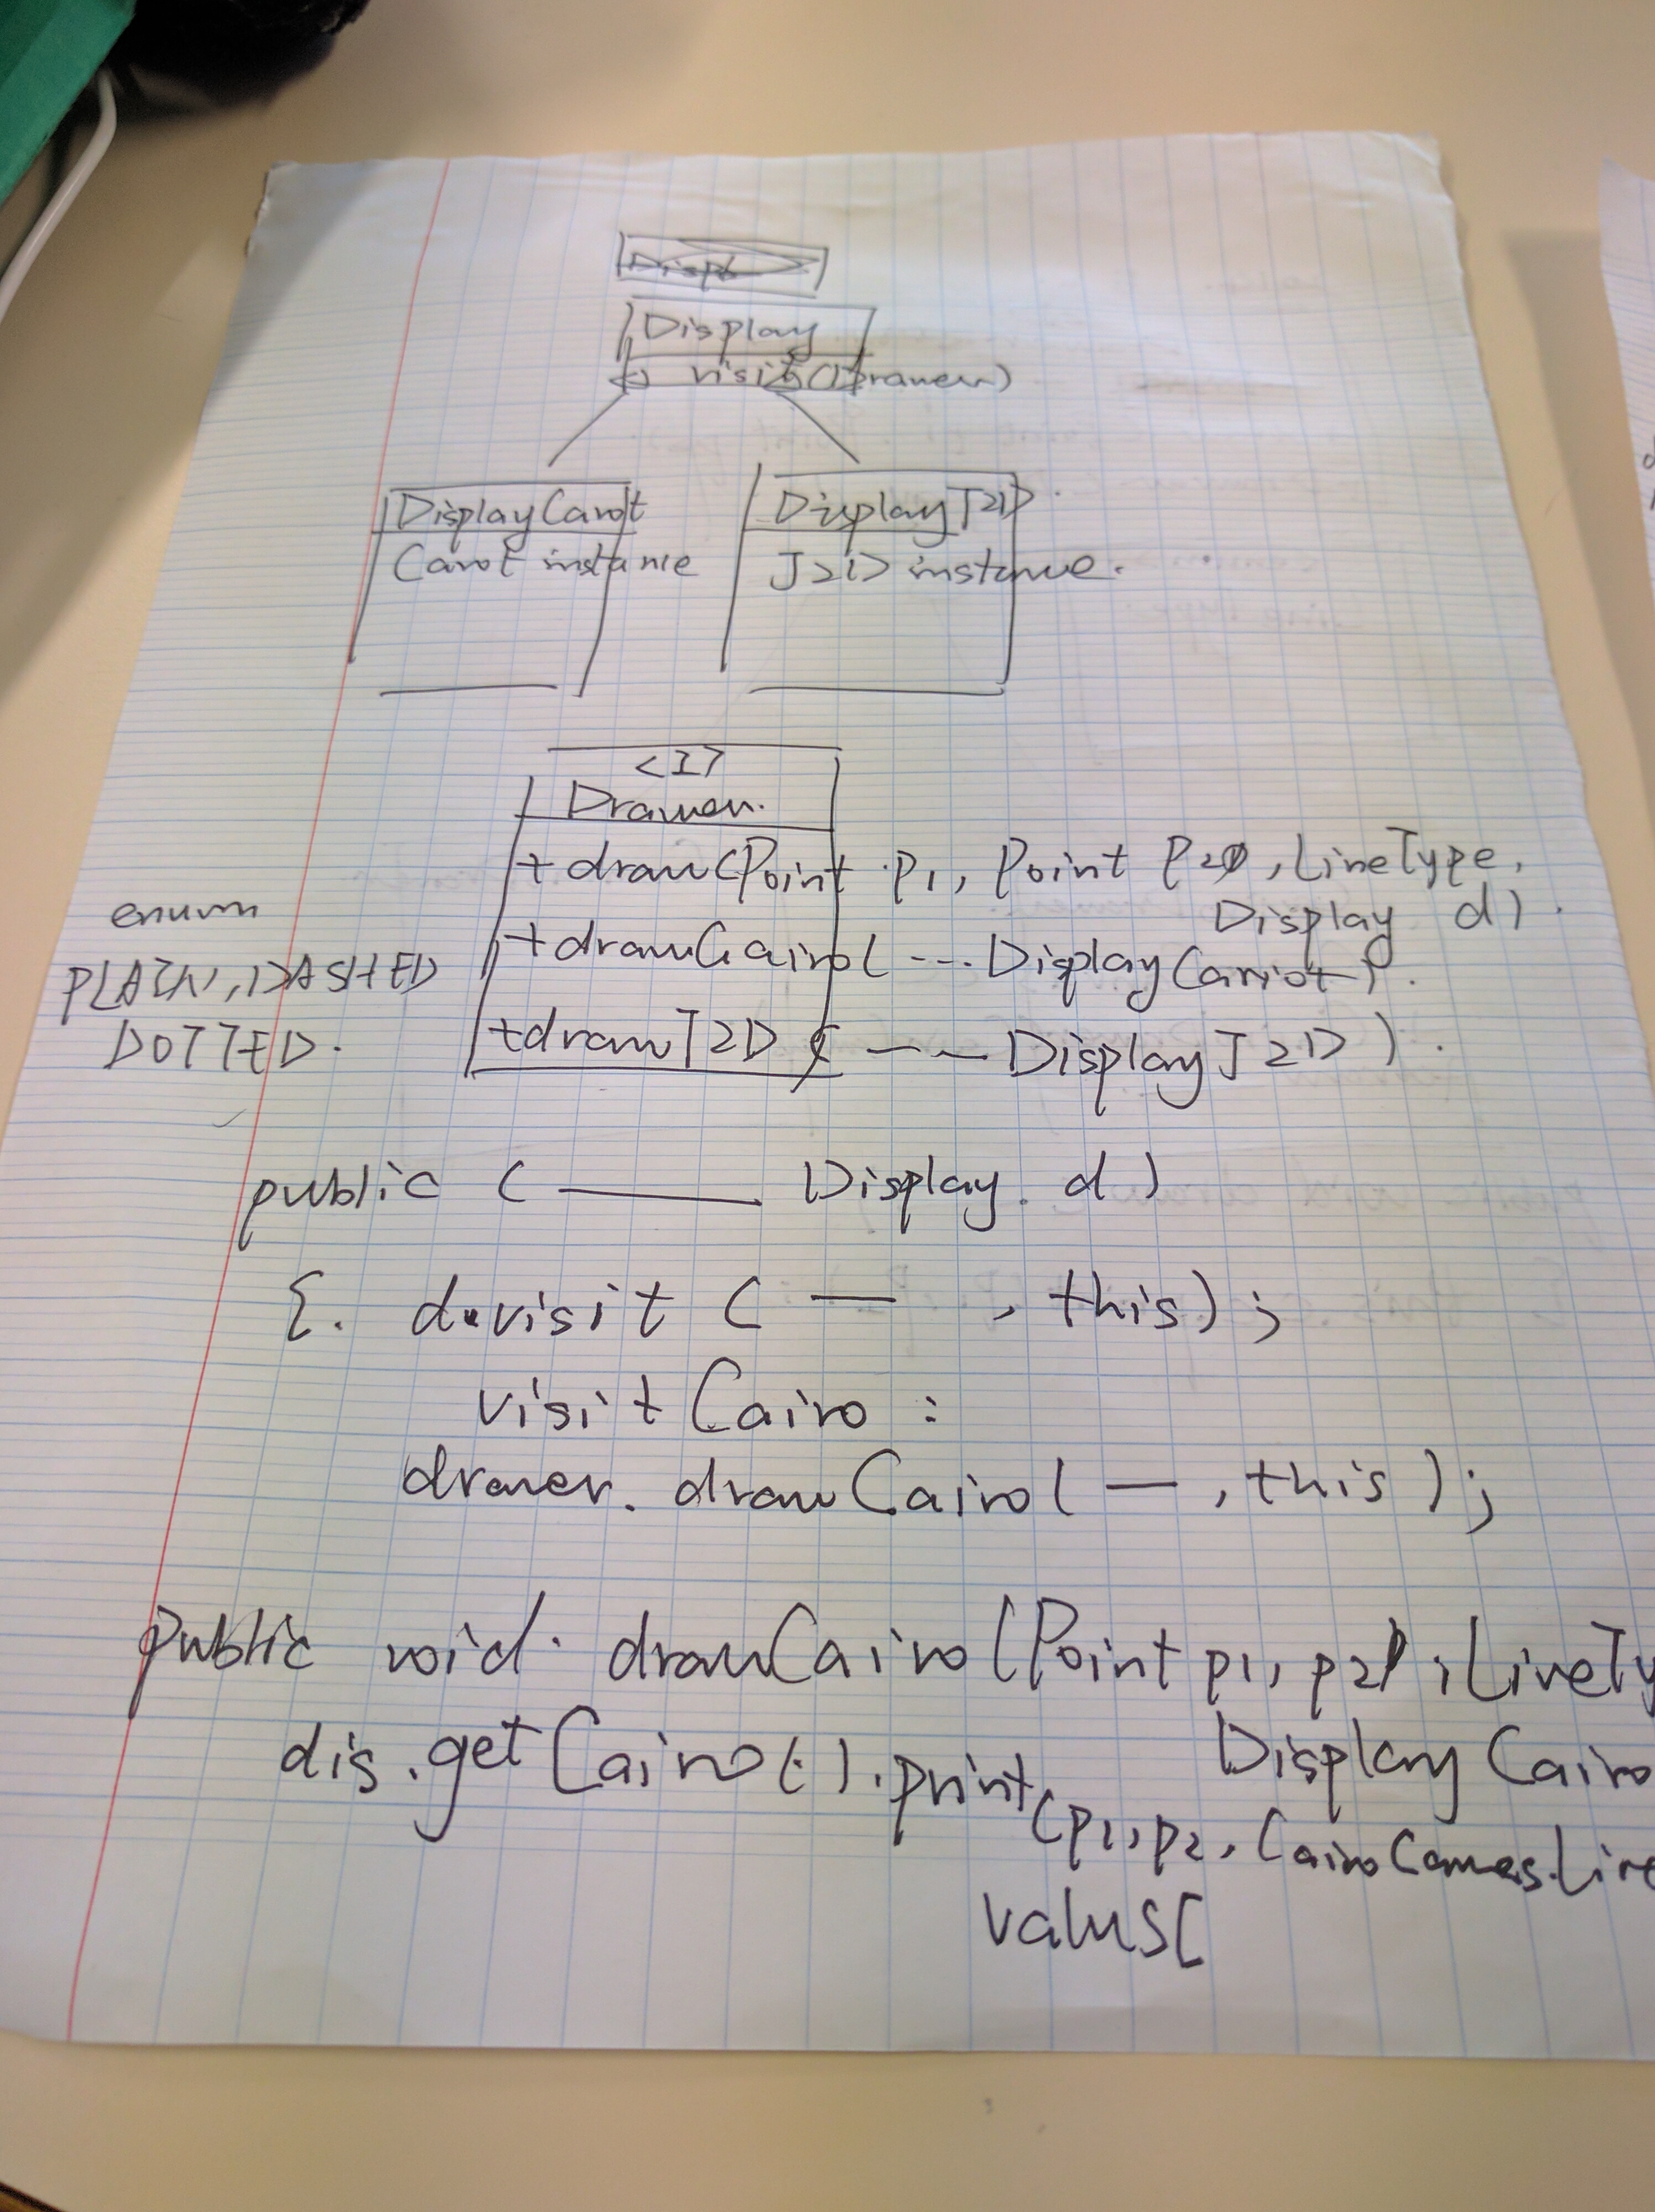 Disp
Display
visit(Drawer)
DisplayCarot
Carot instance
DisplayJ2D.
J2D instance.
<I>
Drawer.
+ draw(Point p1, Point p2, LineType,
Display d).
+drawCairo( --- DisplayCarriot).
+drawJ2D ( -- DisplayJ2D).
enum
PLAIN, DASHED
DOTTED.
public ( — Display d)
{. d.visit ( — , this);
visitCairo :
drawer. drawCairo( — , this);
public void drawCairo(Point p1, p2, LineTy
Display Cairo
dis.getCairo().print
(p1, p2,
values[